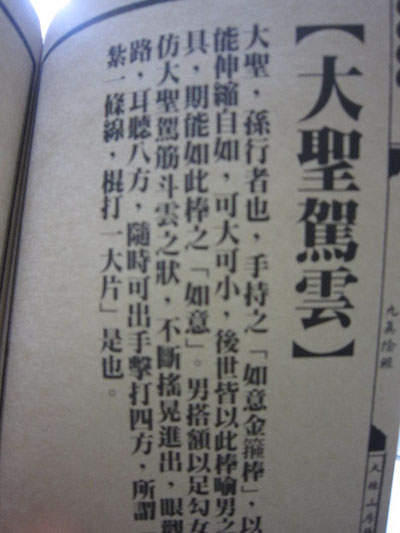 【大聖駕雲】
大聖，孫行者也，手持之「如意金箍棒」，以
能伸縮自如，可大可小，後世皆以此棒喻男之
具，期能如此棒之「如意」。男搭額以足勾女
仿大聖駕筋斗雲之狀，不斷搖晃進出，眼觀
路，耳聽八方，隨時可出手擊打四方，所謂「
紮一條線，棍打一大片」是也。
九真陰經